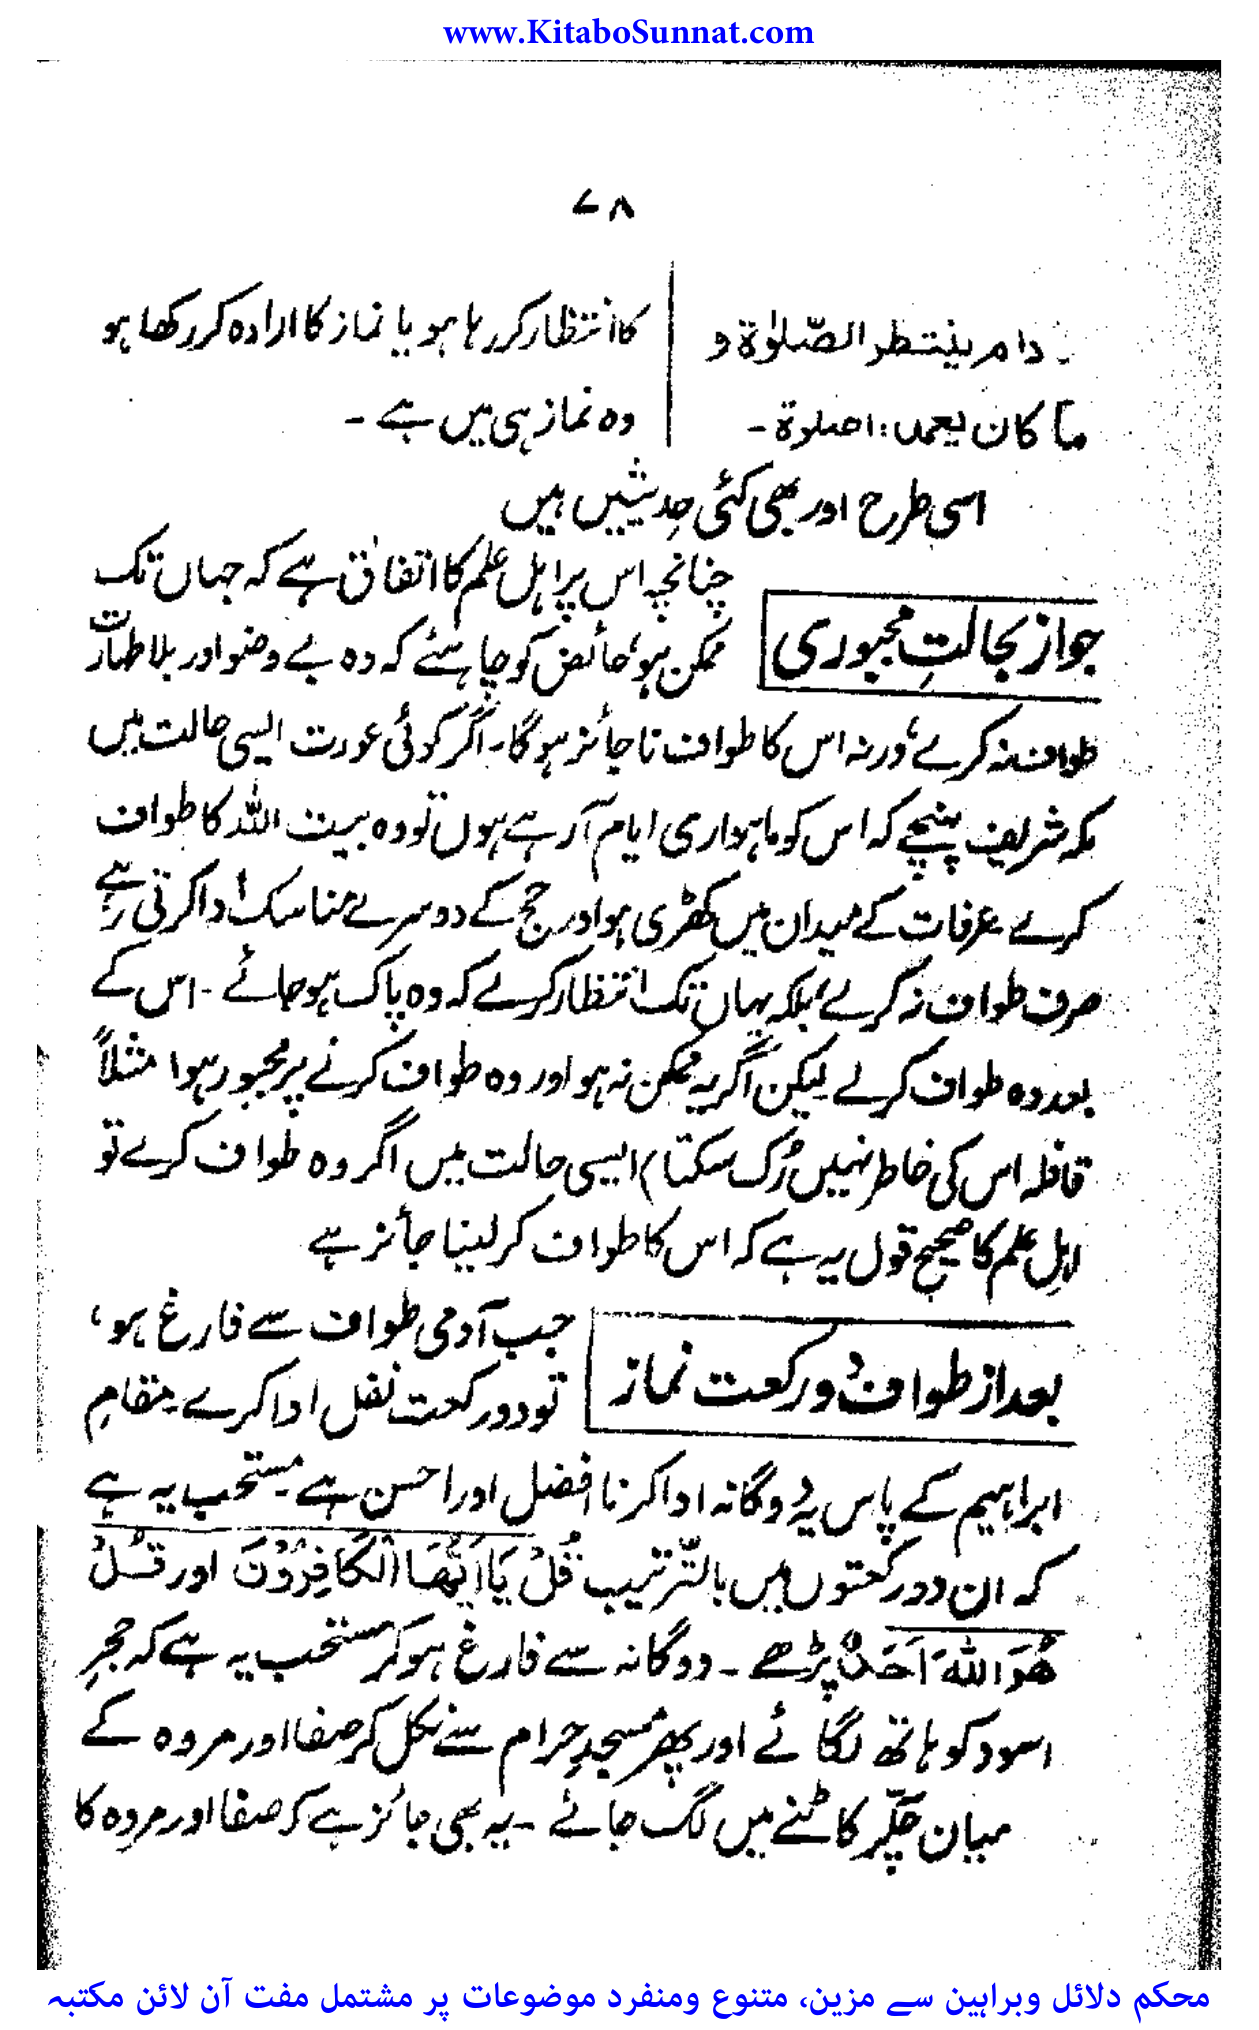 www.KitaboSunnat.com
۷۸
دام ینتظر الصّلوٰة و
ما کان یعمد: اصلوة ـ
کا انتظار کر رہا ہو یا نماز کا ارادہ کر رکھا ہو
وہ نماز ہی میں ہے ۔
اسی طرح اور بھی کئی حدیثیں ہیں
جواز بحالتِ مجبوری
چنانچہ اس پر اہل علم کا اتفاق ہے کہ جہاں تک
ممکن ہو، حائض کو چاہئے کہ وہ بے وضو اور بلا طہارت
طواف نہ کرے، ورنہ اس کا طواف نا جائز ہو گا۔ اگر کوئی عورت ایسی حالت میں
مکہ شریف پہنچے کہ اس کو ماہواری ایام آ رہے ہوں تو وہ بیت اللہ کا طواف
کرے عرفات کے میدان میں کھڑی ہو اور حج کے دوسرے مناسک ادا کرتی رہے
صرف طواف نہ کرے، بلکہ یہاں تک انتظار کرے کہ وہ پاک ہو جائے ۔ اس کے
بعد وہ طواف کرلے لیکن اگر یہ ممکن نہ ہو اور وہ طواف کرنے پر مجبور ہو، مثلاً
قافلہ اس کی خاطر نہیں رُک سکتا) ایسی حالت میں اگر وہ طواف کرے تو
اہلِ علم کا صحیح قول یہ ہے کہ اس کا طواف کر لینا جائز ہے
بعد از طواف دو رکعت نماز
جب آدمی طواف سے فارغ ہو،
تو دو رکعت نفل ادا کرے ۔ مقامِ
ابراہیم کے پاس یہ دوگانہ ادا کرنا افضل اور احسن ہے ۔ مستحب یہ ہے
کہ ان دو رکعتوں میں بالتّرتیب قُلْ یَا اَیُّهَا الْکَافِرُوْنَ اور قُلْ
هُوَ اللهُ اَحَدٌ پڑھے ۔ دوگانہ سے فارغ ہو کر مستحب یہ ہے کہ حجرِ
اسود کو ہاتھ لگائے اور پھر مسجدِ حرام سے نکل کر صفا اور مروہ کے
میان چکّر کاٹنے میں لگ جائے ۔ یہ بھی جائز ہے کہ صفا اور مروہ کا
محکم دلائل وبراہین سے مزین، متنوع ومنفرد موضوعات پر مشتمل مفت آن لائن مکتبہ